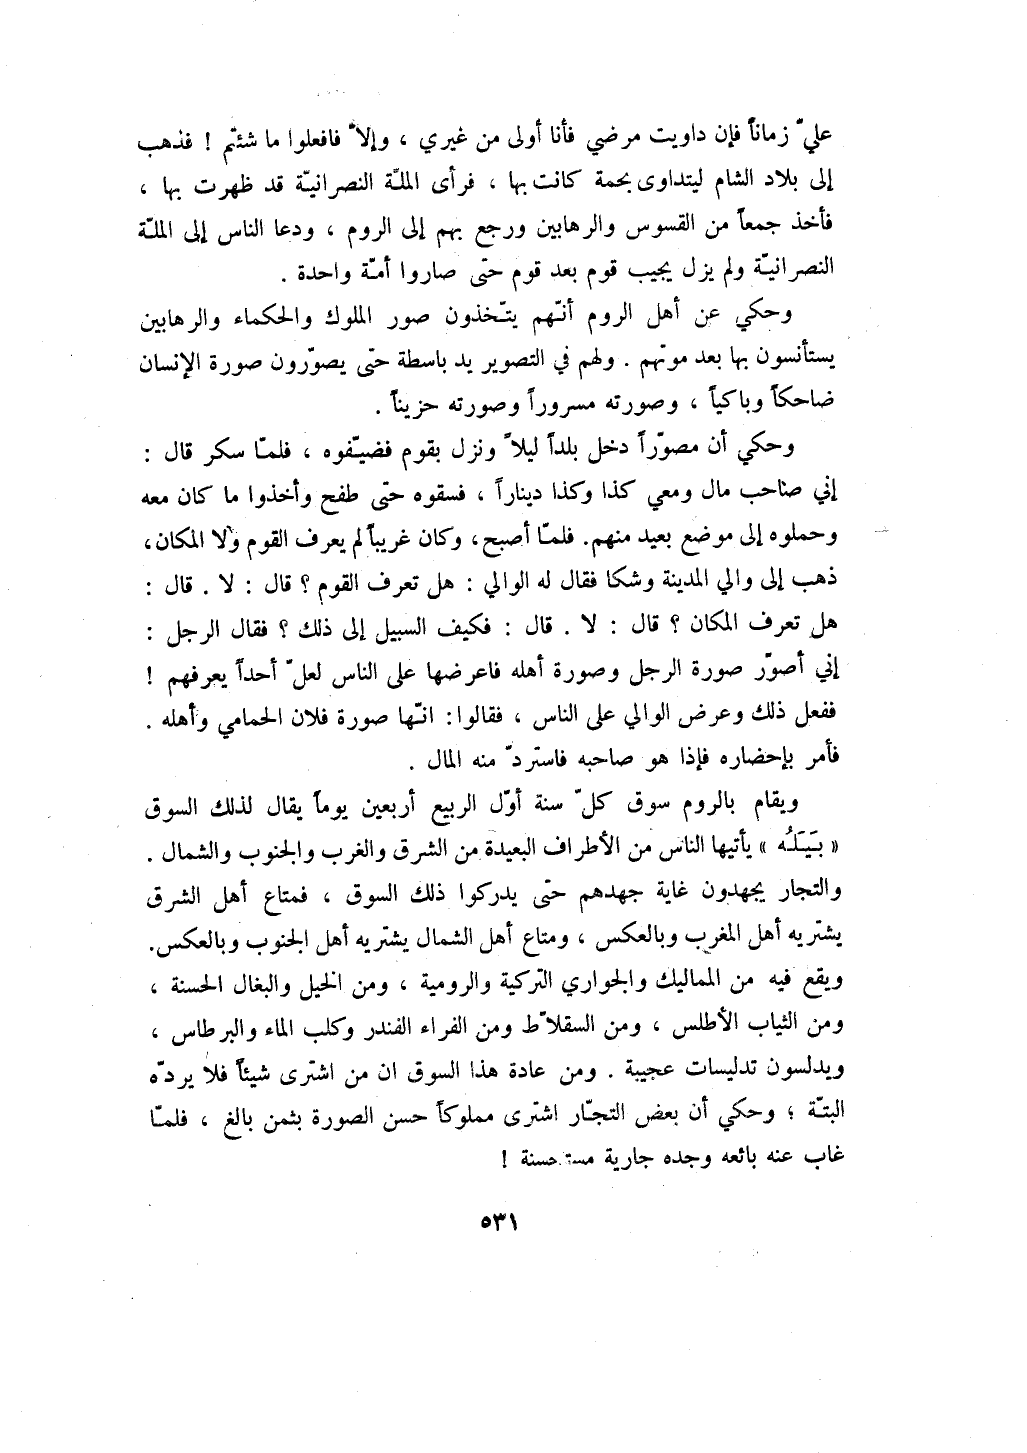 عليّ زماناً فإن داويت مرضي فأنا أولى من غيري ، وإلاّ فافعلوا ما شئتم ! فذهب
إلى بلاد الشام ليتداوى بحمة كانت بها ، فرأى الملّة النصرانيّة قد ظهرت بها ،
فأخذ جمعاً من القسوس والرهابين ورجع بهم إلى الروم ، ودعا الناس إلى الملّة
النصرانيّة ولم يزل يجيب قوم بعد قوم حتّى صاروا أمّة واحدة .
وحكي عن أهل الروم أنّهم يتّخذون صور الملوك والحكماء والرهابين
يستأنسون بها بعد موتهم . ولهم في التصوير يد باسطة حتّى يصوّرون صورة الإنسان
ضاحكاً وباكياً ، وصورته مسروراً وصورته حزيناً .
وحكي أن مصوّراً دخل بلداً ليلاً ونزل بقوم فضيّفوه ، فلمّا سكر قال :
إني صاحب مال ومعي كذا وكذا ديناراً ، فسقوه حتّى طفح وأخذوا ما كان معه
وحملوه إلى موضع بعيد منهم. فلمّا أصبح، وكان غريباً لم يعرف القوم ولا المكان،
ذهب إلى والي المدينة وشكا فقال له الوالي : هل تعرف القوم ؟ قال : لا . قال :
هل تعرف المكان ؟ قال : لا . قال : فكيف السبيل إلى ذلك ؟ فقال الرجل :
إني أصوّر صورة الرجل وصورة أهله فاعرضها على الناس لعلّ أحداً يعرفهم !
ففعل ذلك وعرض الوالي على الناس ، فقالوا: انّها صورة فلان الحمامي وأهله .
فأمر بإحضاره فإذا هو صاحبه فاستردّ منه المال .
ويقام بالروم سوق كلّ سنة أوّل الربيع أربعين يوماً يقال لذلك السوق
« بَيَلُه » يأتيها الناس من الأطراف البعيدة من الشرق والغرب والجنوب والشمال .
والتجار يجهدون غاية جهدهم حتّى يدركوا ذلك السوق ، فمتاع أهل الشرق
يشتريه أهل المغرب وبالعكس ، ومتاع أهل الشمال يشتريه أهل الجنوب وبالعكس.
ويقع فيه من المماليك والجواري التركية والرومية ، ومن الخيل والبغال الحسنة ،
ومن الثياب الأطلس ، ومن السقلاّط ومن الفراء الفندر وكلب الماء والبرطاس ،
ويدلسون تدليسات عجيبة . ومن عادة هذا السوق ان من اشترى شيئاً فلا يردّه
البتّة ؛ وحكي أن بعض التجّار اشترى مملوكاً حسن الصورة بثمن بالغ ، فلمّا
غاب عنه بائعه وجده جارية مستحسنة !
٥٣١